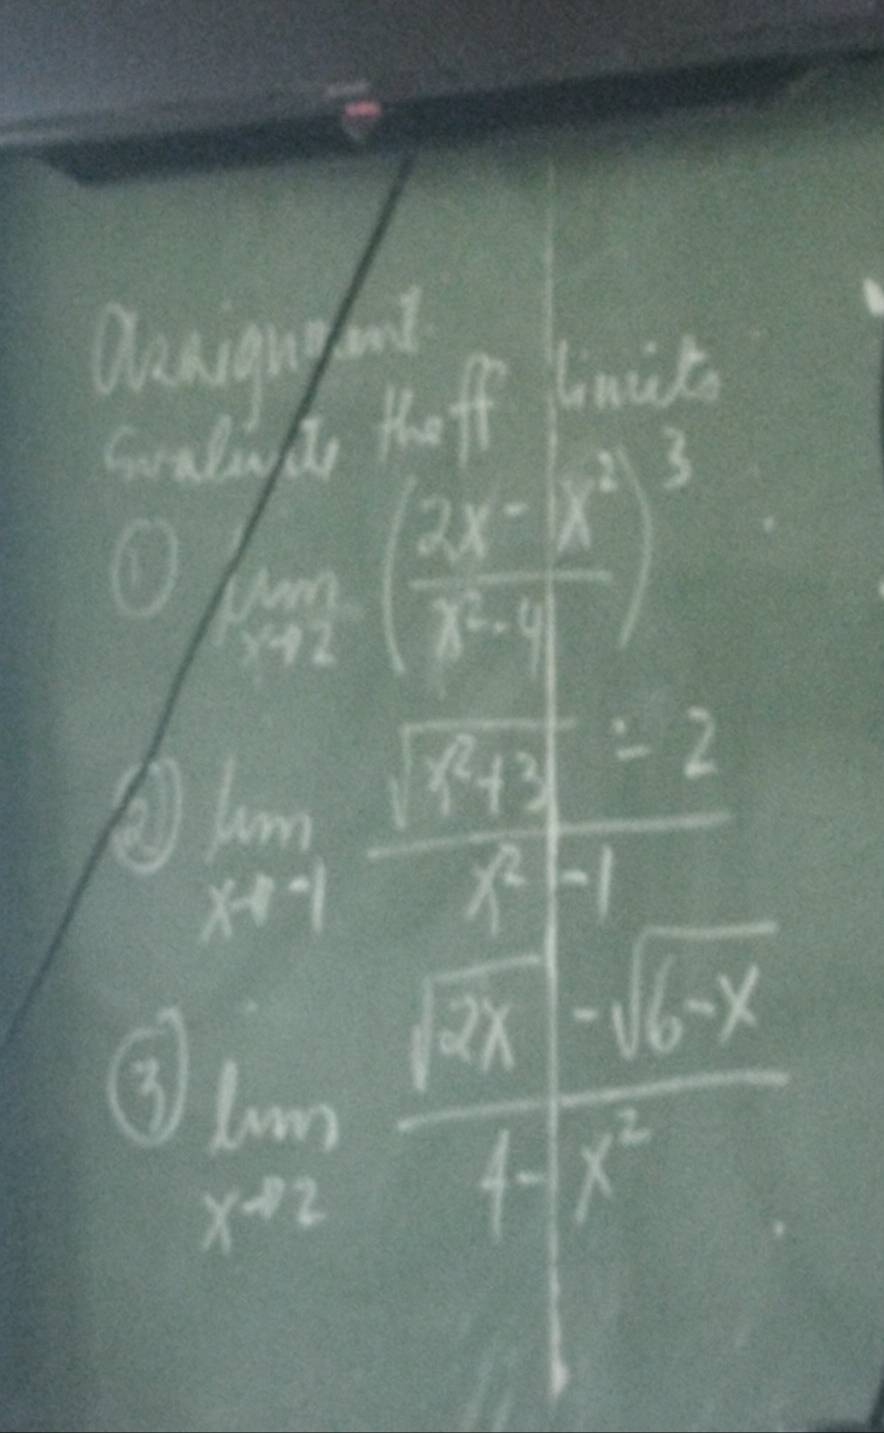 Assignment
Evaluate the ff limits
① lim x→2 ((2x - x²)/(x² - 4))³
② lim x→-1 (√(x²+3) - 2)/(x² - 1)
③ lim x→2 (√(2x) - √(6-x))/(4 - x²)